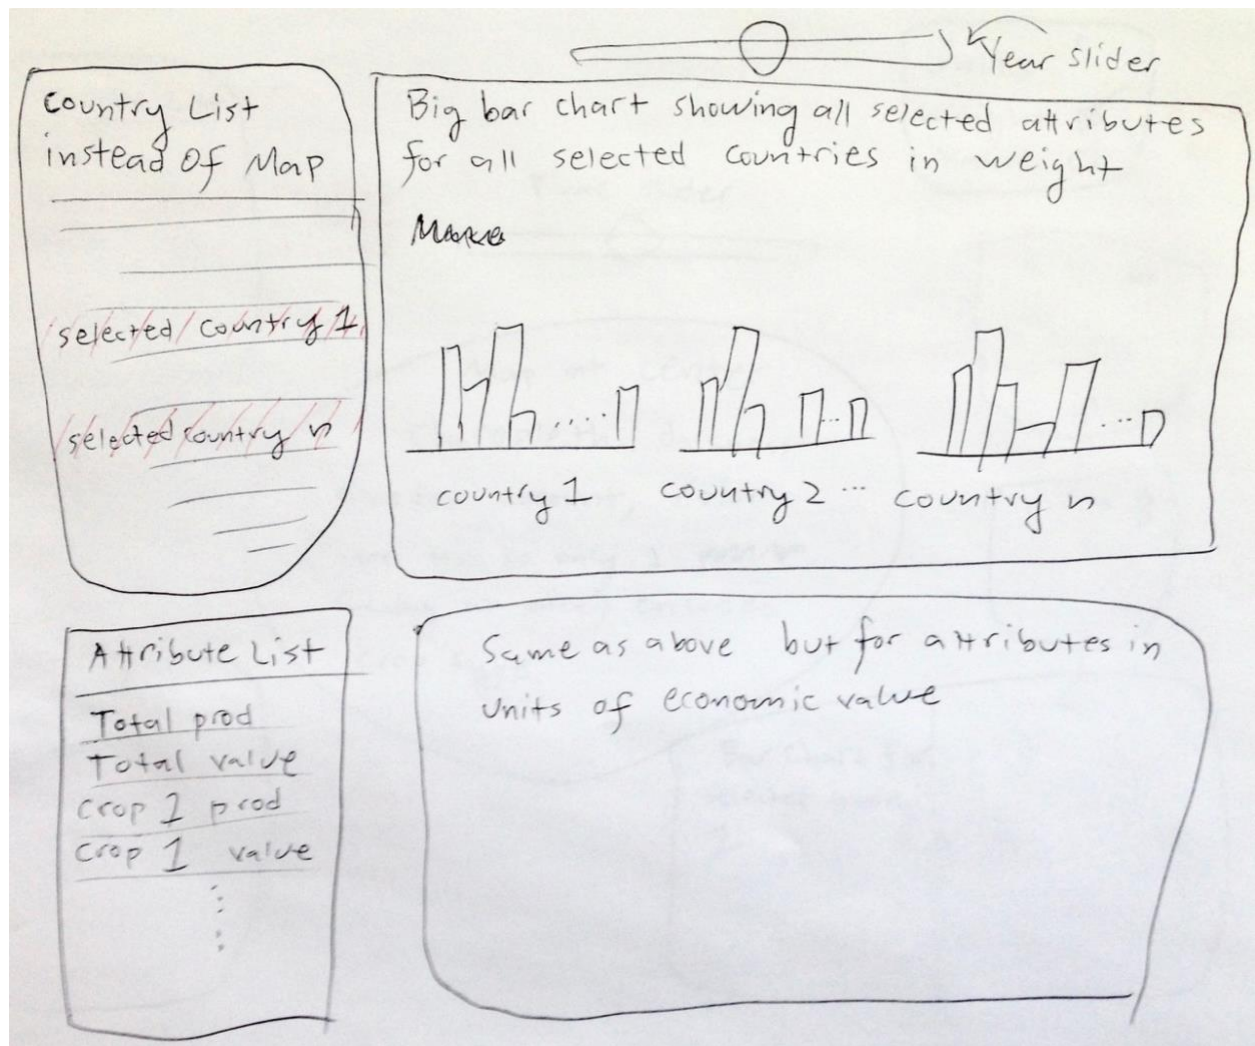 Year slider
Country List
instead of Map
selected country 1
selected country n
Big bar chart showing all selected attributes
for all selected countries in weight
country 1 country 2 ... country n
Attribute List
Total prod
Total value
crop 1 prod
crop 1 value
Same as above but for attributes in
units of economic value